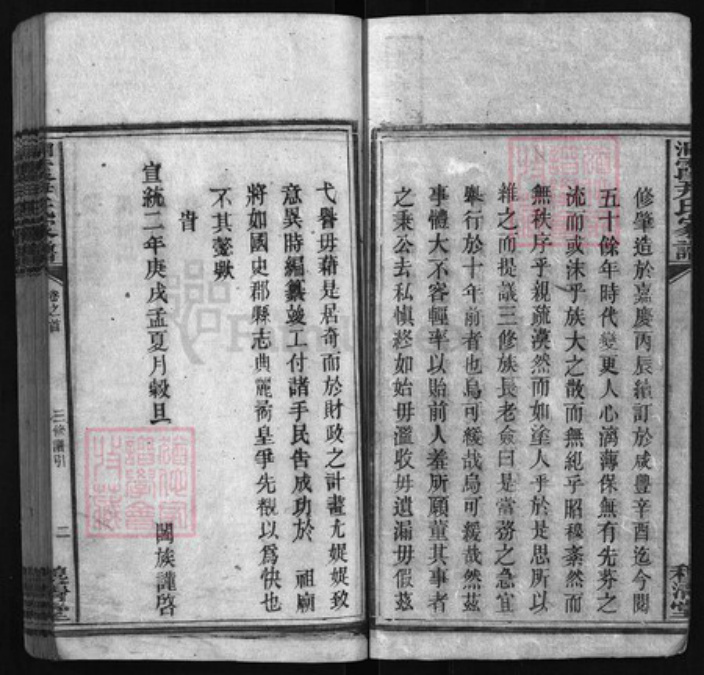 修肇造於嘉慶丙辰續訂於咸豐辛酉迄今閱
五十餘年時代變更人心漓薄保無有先芬之
流而或沫乎族大之散而無紀乎昭穆紊然而
無秩序乎親疏漠然而如塗人乎於是思所以
維之而提議三修族長老僉曰是當務之急宜
舉行於十年前者也烏可緩哉烏可緩哉然茲
事體大不容輕率以貽前人羞所願董其事者
之秉公去私慎終如始毋濫收毋遺漏毋假茲
弋譽毋藉是居奇而於財政之計畫尤娓娓致
意異時編纂竣工付諸手民告成功於 祖廟
將如國史郡縣志典麗矞皇爭先覩以為快也
不其懿歟
旹
宣統二年庚戌孟夏月穀旦
闔族謹啓
卷之首
三修譜引
二